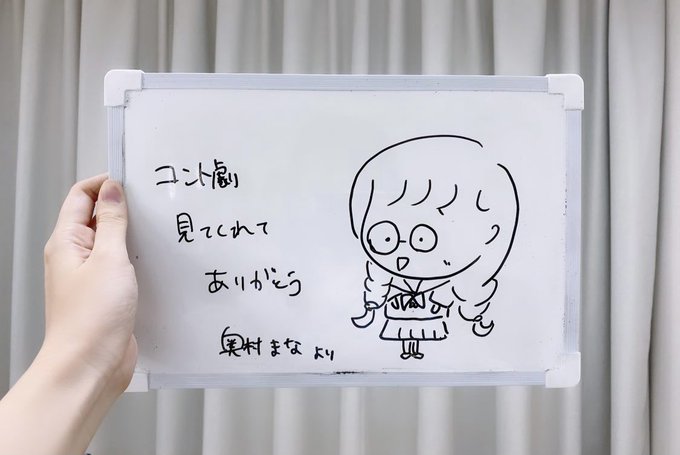 コント劇
見てくれて
ありがとう
奥村まなより